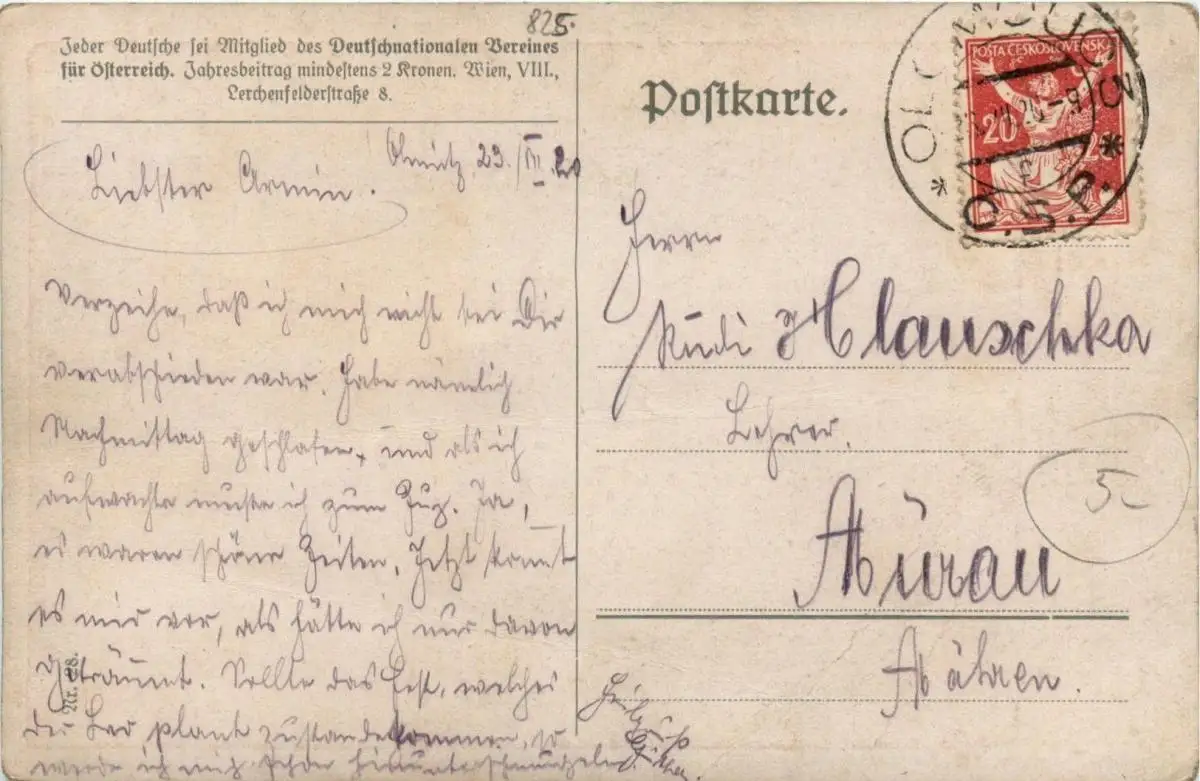 825.
Jeder Deutsche sei Mitglied des Deutschnationalen Vereines
für Österreich. Jahresbeitrag mindestens 2 Kronen. Wien, VIII.,
Lerchenfelderstraße 8.
Postkarte.
POSTA ČESKOSLOVENSKÁ
20
Olmütz, 23./VII. 20
Liebster Armin.
Verzeihe, daß ich mich nicht bei Dir
verabschieden war. Habe nämlich
Nachmittag geschlafen, und als ich
aufwachte musste ich zum Zug. Ja,
es waren schöne Zeiten. Jetzt kommt
es mir vor, als hätte ich nur davon
geträumt. Sollte das Fest, welches
der Leo plant zustandekommen, so
werde ich mich
Nr. 28.
Herrn
Rudi Hlauschka
Lehrer.
Mürau
Mähren.
5-